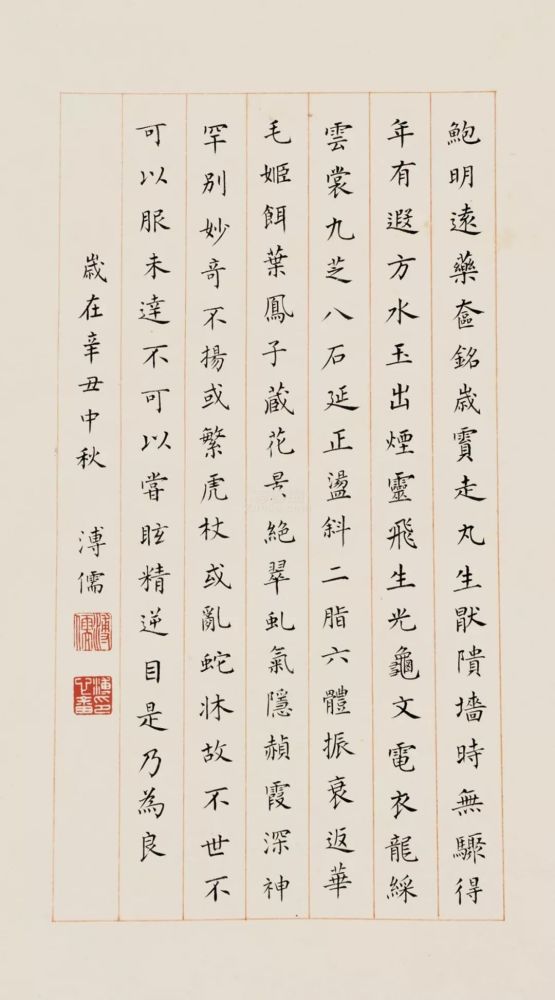 鮑明遠藥奩銘歲霣走丸生猒隤墻時無驟得
年有遐方水玉出煙靈飛生光龜文電衣龍綵
雲裳九芝八石延正盪斜二脂六體振衰返華
毛姬餌葉鳳子藏花景絕翠虬氣隱赬霞深神
罕別妙奇不揚或繁虎杖或亂蛇牀故不世不
可以服未達不可以嘗眩精逆目是乃為良
歲在辛丑中秋 溥儒
溥儒
溥儒之印